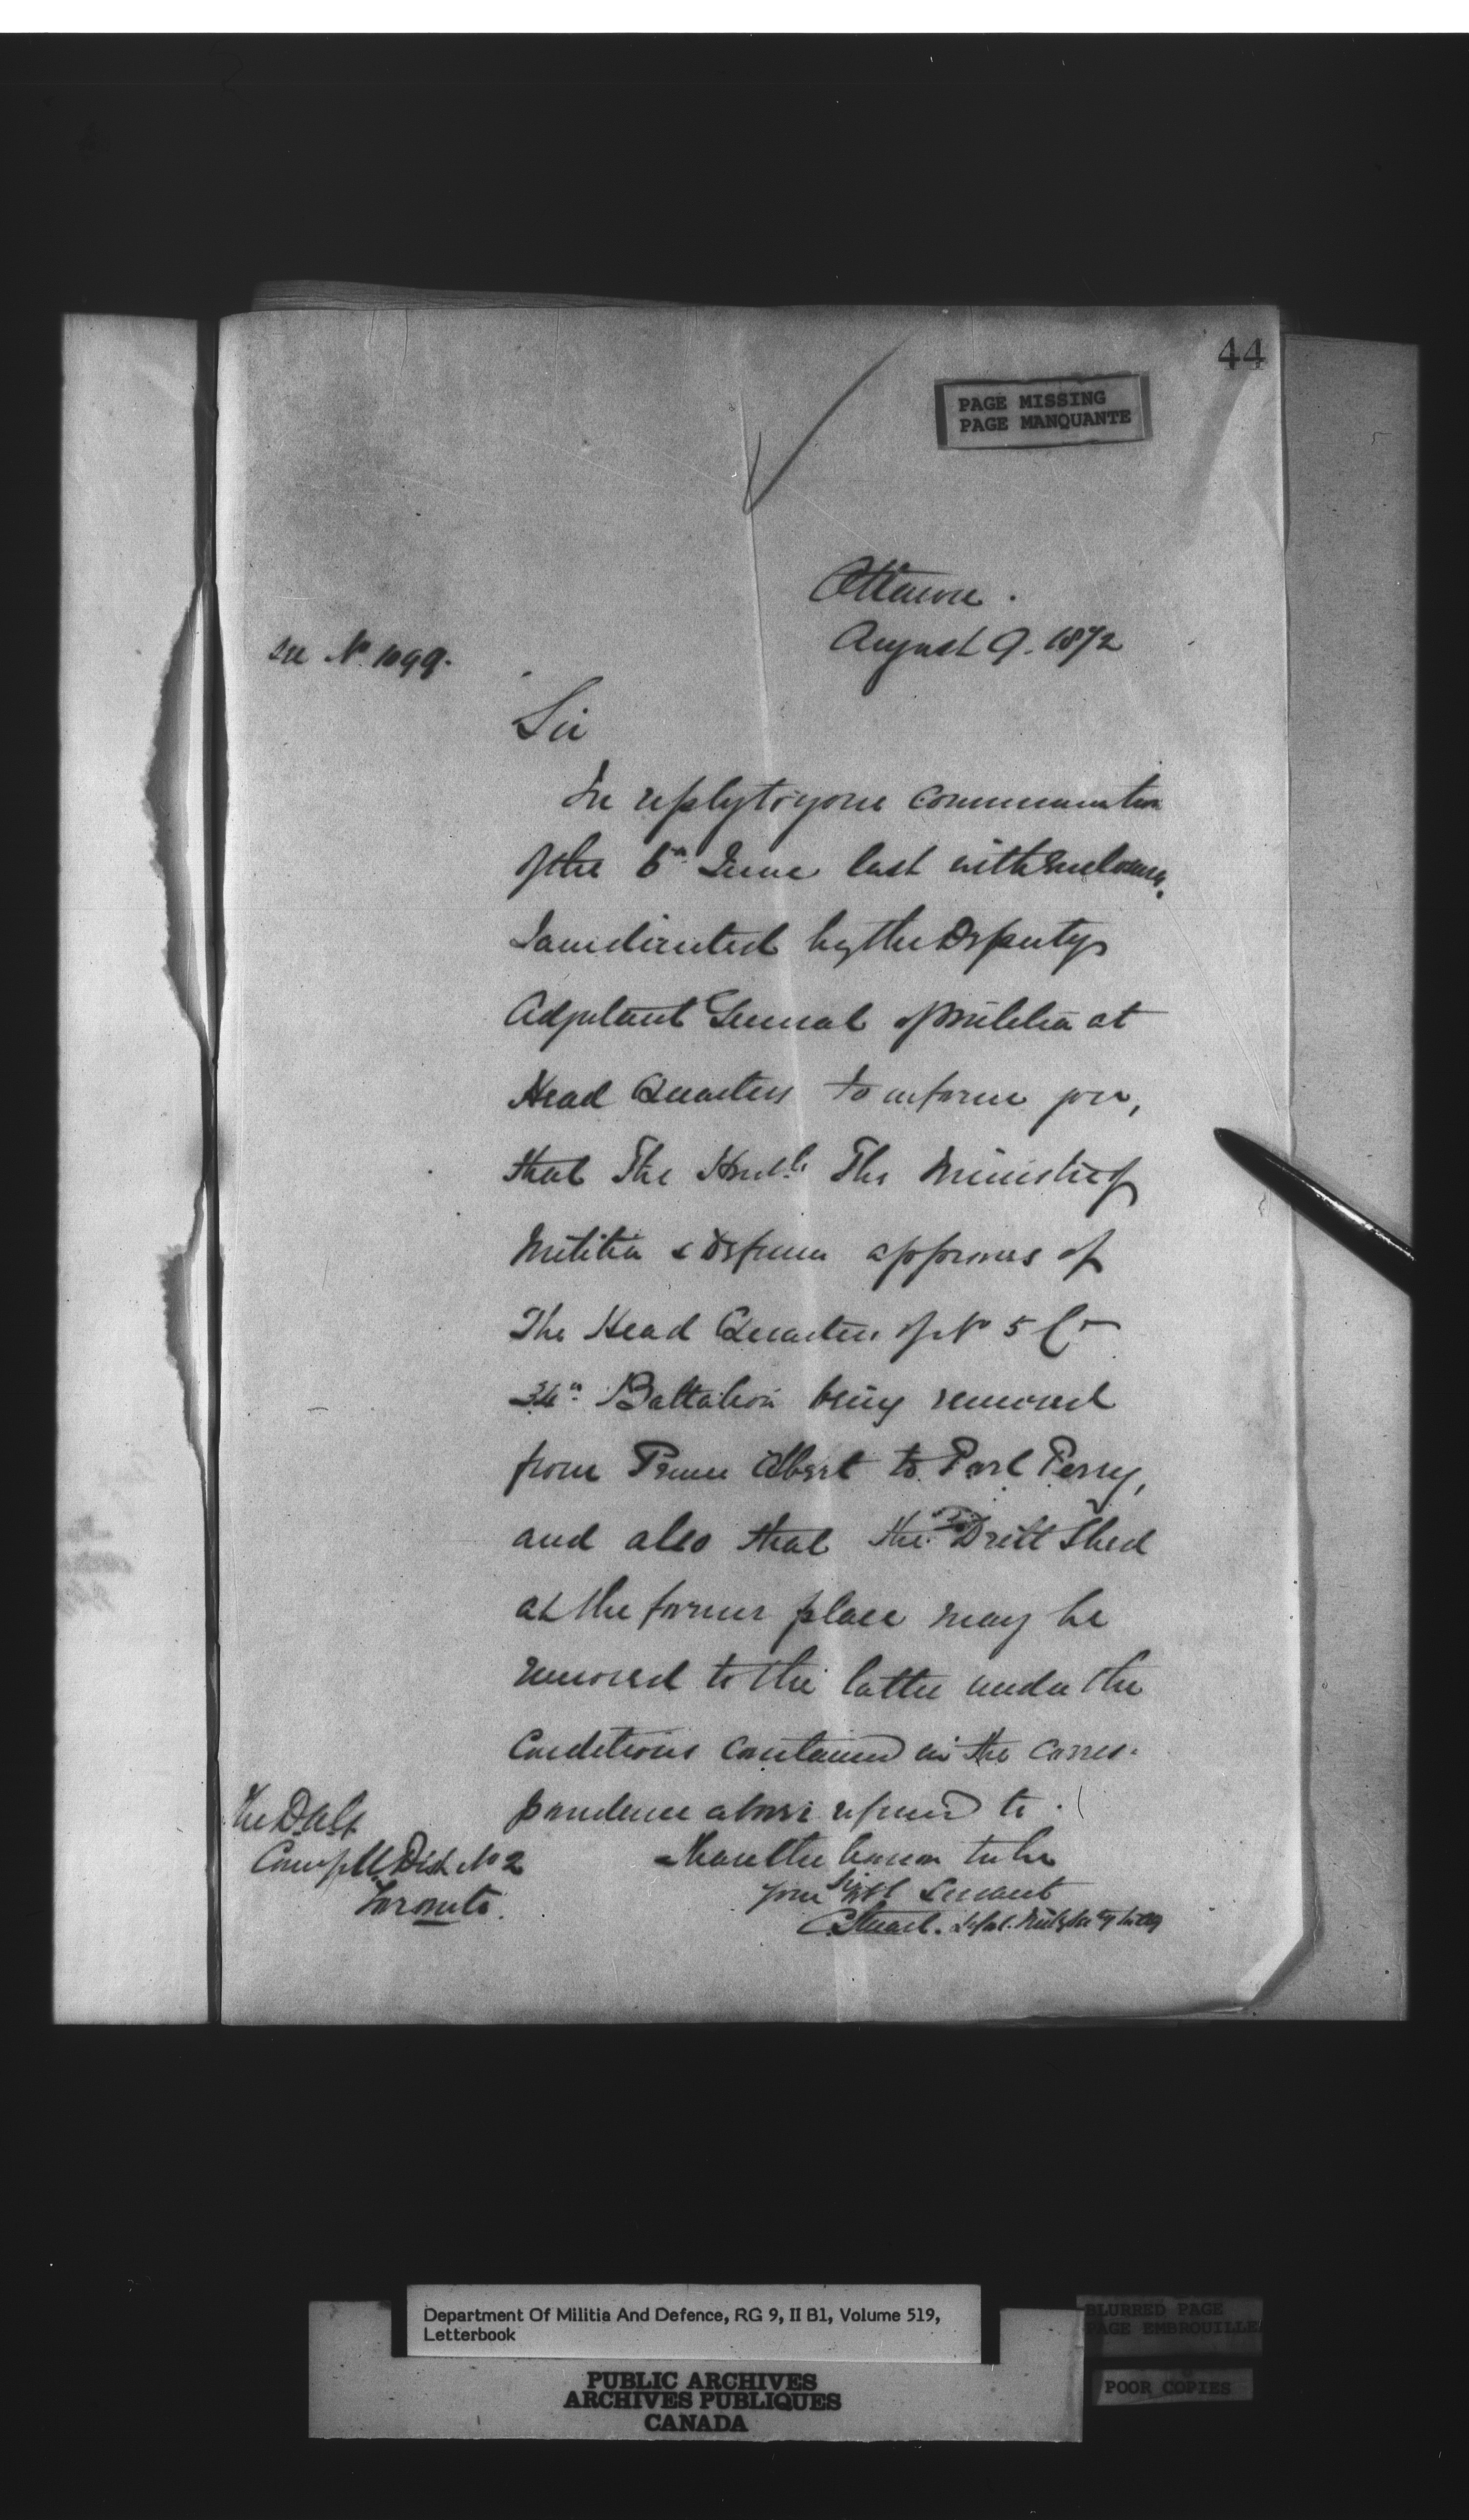 44
PAGE MISSING
PAGE MANQUANTE
Ottawa.
August 9. 1872
See No. 1099.
Sir
In reply to your communication
of the 6th June last with enclosures,
I am directed by the Deputy
Adjutant General of Militia at
Head Quarters to inform you,
that The Honble The Minister of
Militia & Defence approves of
The Head Quarters of No 5 Co
34th Battalion being removed
from Prince Albert to Port Perry,
and also that the Drill Shed
at the former place may be
removed to the latter under the
Conditions contained in the corres-
pondence above referred to.
The D.A.G.
Comg Ml. Dist No 2
Toronto.
I have the honor to be
Sir
Your obt Servant
C. Stuart.
Department Of Militia And Defence, RG 9, II B1, Volume 519,
Letterbook
PUBLIC ARCHIVES
ARCHIVES PUBLIQUES
CANADA
BLURRED PAGE
PAGE EMBROUILLE
POOR COPIES